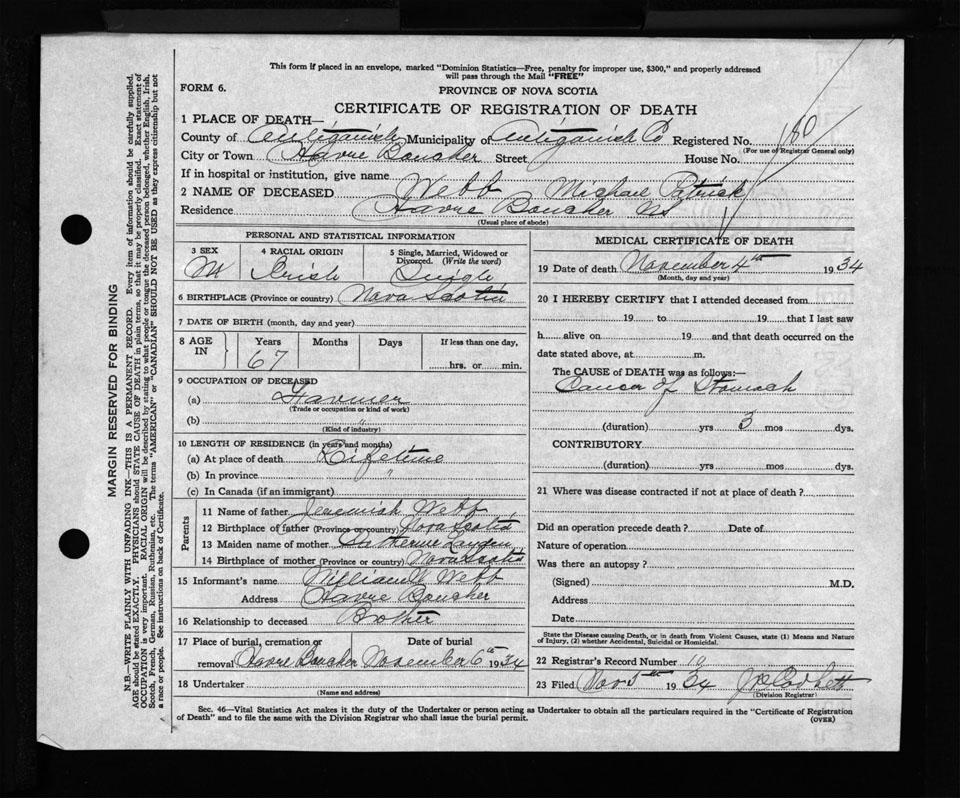 This form if placed in an envelope, marked "Dominion Statistics—Free, penalty for improper use, $300," and properly addressed
will pass through the Mail "FREE"
FORM 6.
PROVINCE OF NOVA SCOTIA
CERTIFICATE OF REGISTRATION OF DEATH
1 PLACE OF DEATH—
County of Antigonish Municipality of Antigonish Co Registered No. 180
(For use of Registrar General only)
City or Town Havre Boucher Street House No.
If in hospital or institution, give name
2 NAME OF DECEASED Webb Michael Patrick
Residence Havre Boucher NS
(Usual place of abode)
PERSONAL AND STATISTICAL INFORMATION
3 SEX 4 RACIAL ORIGIN 5 Single, Married, Widowed or Divorced. (Write the word)
M Irish Single
6 BIRTHPLACE (Province or country) Nova Scotia
7 DATE OF BIRTH (month, day and year)
8 AGE IN Years Months Days If less than one day,
67 hrs. or min.
9 OCCUPATION OF DECEASED
(a) Farmer
(Trade or occupation or kind of work)
(b) "
(Kind of industry)
10 LENGTH OF RESIDENCE (in years and months)
(a) At place of death Lifetime
(b) In province "
(c) In Canada (if an immigrant)
Parents
11 Name of father Jeremiah Webb
12 Birthplace of father (Province or country) Nova Scotia
13 Maiden name of mother Catherine
14 Birthplace of mother (Province or country) Nova Scotia
15 Informant's name William Webb
Address Havre Boucher
16 Relationship to deceased Brother
17 Place of burial, cremation or removal Date of burial
Havre Boucher November 6th 1934
18 Undertaker
(Name and address)
MEDICAL CERTIFICATE OF DEATH
19 Date of death November 4th 1934
(Month, day and year)
20 I HEREBY CERTIFY that I attended deceased from
19 to 19 that I last saw
h alive on 19 and that death occurred on the
date stated above, at m.
The CAUSE of DEATH was as follows:—
Cancer of Stomach
(duration) yrs 3 mos dys.
CONTRIBUTORY
(duration) yrs mos dys.
21 Where was disease contracted if not at place of death?
Did an operation precede death? Date of
Nature of operation
Was there an autopsy?
(Signed) M.D.
Address
Date
State the Disease causing Death, or in death from Violent Causes, state (1) Means and Nature
of Injury, (2) whether Accidental, Suicidal or Homicidal.
22 Registrar's Record Number 10
23 Filed Nov 5th 1934
(Division Registrar)
Sec. 46—Vital Statistics Act makes it the duty of the Undertaker or person acting as Undertaker to obtain all the particulars required in the "Certificate of Registration
of Death" and to file the same with the Division Registrar who shall issue the burial permit. (OVER)
MARGIN RESERVED FOR BINDING
N.B.—WRITE PLAINLY WITH UNFADING INK—THIS IS A PERMANENT RECORD. Every item of information should be carefully supplied.
AGE should be stated EXACTLY. PHYSICIANS should STATE CAUSE OF DEATH in plain terms, so that it may be properly classified. Exact statement of
OCCUPATION is very important. RACIAL ORIGIN will be described by stating to what people or tongue the deceased person belonged, whether English, Irish,
Scotch, French, German, Russian, Ruthenian, etc. The terms "AMERICAN" or "CANADIAN" SHOULD NOT BE USED as they express citizenship but not
a race or people. See instructions on back of Certificate.